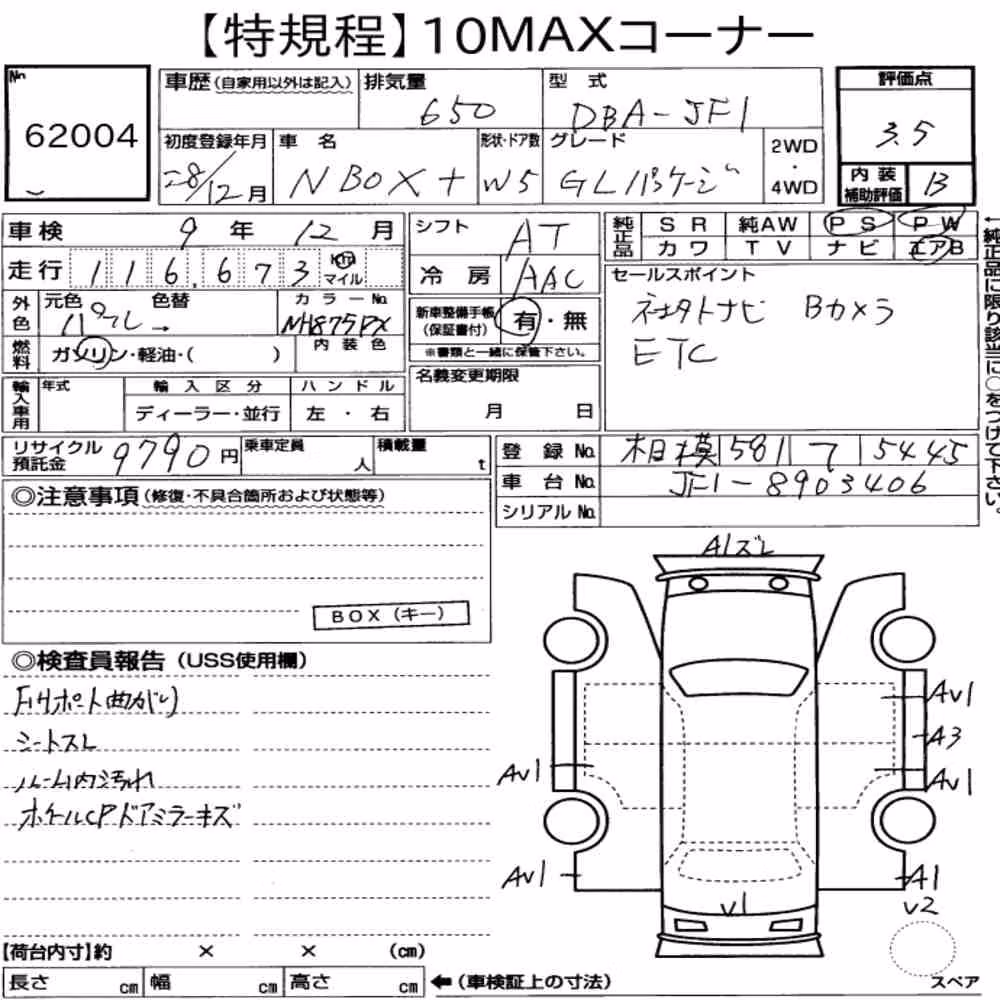 【特規程】10MAXコーナー
No
62004
車歴(自家用以外は記入)
排気量
650
型式
DBA-JF1
評価点
3.5
初度登録年月
28/12月
車名
N BOX +
形状・ドア数
W5
グレード
GLパッケージ
2WD
・
4WD
内装
補助評価
B
車検 9年 12月
シフト
AT
純正品
SR 純AW PS PW
カワ TV ナビ エアB
走行 116,673 Km
マイル
冷房
AAC
セールスポイント
社外ナビ Bカメラ
ETC
外色
元色 色替
パール→
カラーNo.
NH875PX
新車整備手帳
(保証書付)
有・無
※書類と一緒に保管下さい。
燃料
ガソリン・軽油・( )
内装色
名義変更期限
月 日
輸入車用
年式
輸入区分
ディーラー・並行
ハンドル
左・右
リサイクル
預託金
9790円
乗車定員
人
積載量
t
登録No.
相模 581 7 5445
車台No.
JF1-8903406
シリアルNo.
←純正品に限り該当に○をつけて下さい。
◎注意事項(修復・不具合箇所および状態等)
BOX(キー)
◎検査員報告(USS使用欄)
Fサポート曲がり
シートスレ
ルーム内汚れ
ホイールCPドアミラーキズ
A1ズレ
AV1
A3
AV1
AV1
AV1
A1
V2
V1
スペア
【荷台内寸】約 × × (cm)
長さ cm 幅 cm 高さ cm
←(車検証上の寸法)